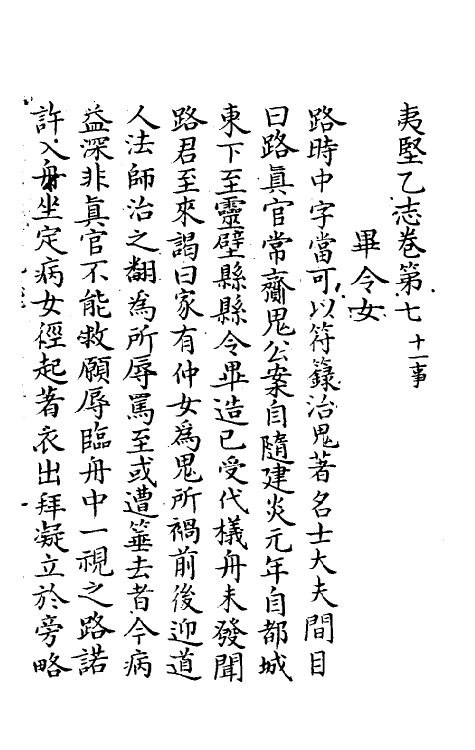 夷堅乙志卷第七 十一事
畢令女
路時中字當可以符籙治鬼著名士大夫間目
曰路眞官常齎鬼公案自隨建炎元年自都城
東下至靈璧縣縣令畢造已受代檥舟未發聞
路君至來謁曰家有仲女爲鬼所禍前後迎道
人法師治之翻爲所辱罵至或遭箠去者今病
益深非眞官不能救願辱臨舟中一視之路諾
許入舟坐定病女徑起著衣出拜凝立於旁略